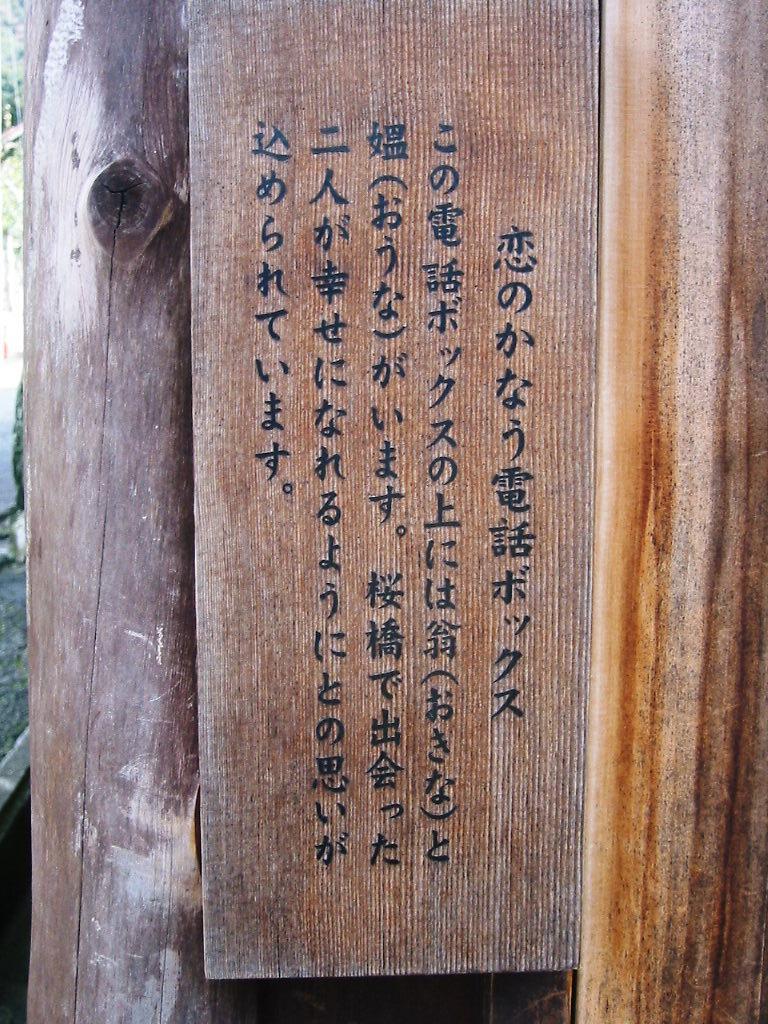 恋のかなう電話ボックス
この電話ボックスの上には翁(おきな)と
媼(おうな)がいます。 桜橋で出会った
二人が幸せになれるようにとの思いが
込められています。